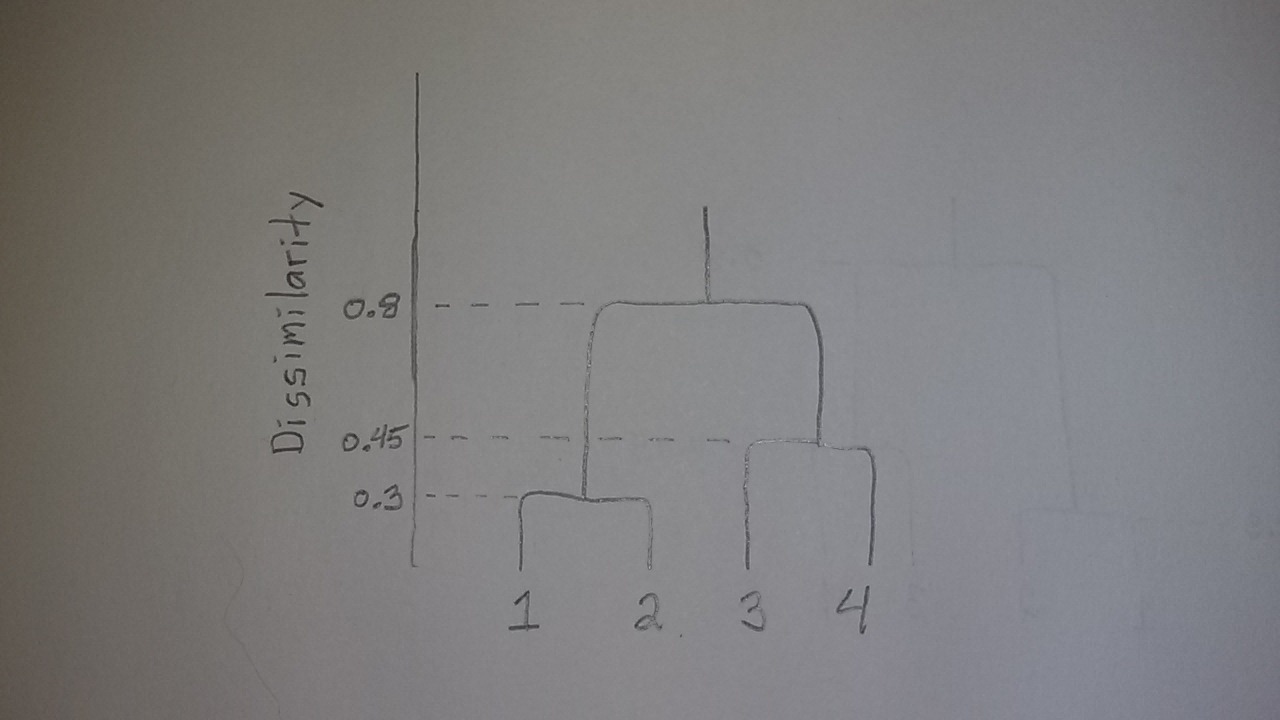 Dissimilarity
0.8
0.45
0.3
1 2 3 4